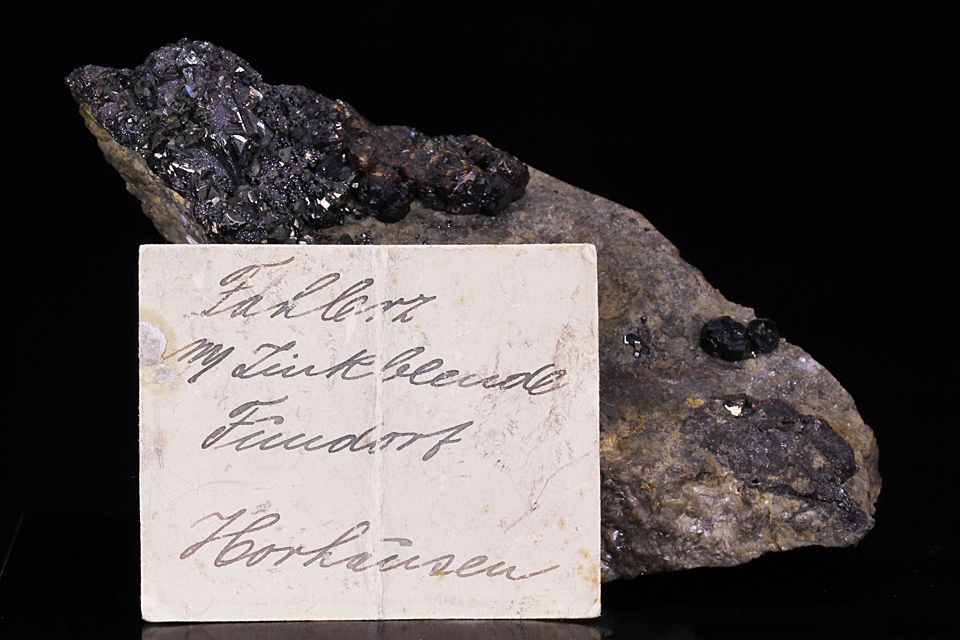 Fahlerz
m Zinkblende
Fundorf
Horhausen